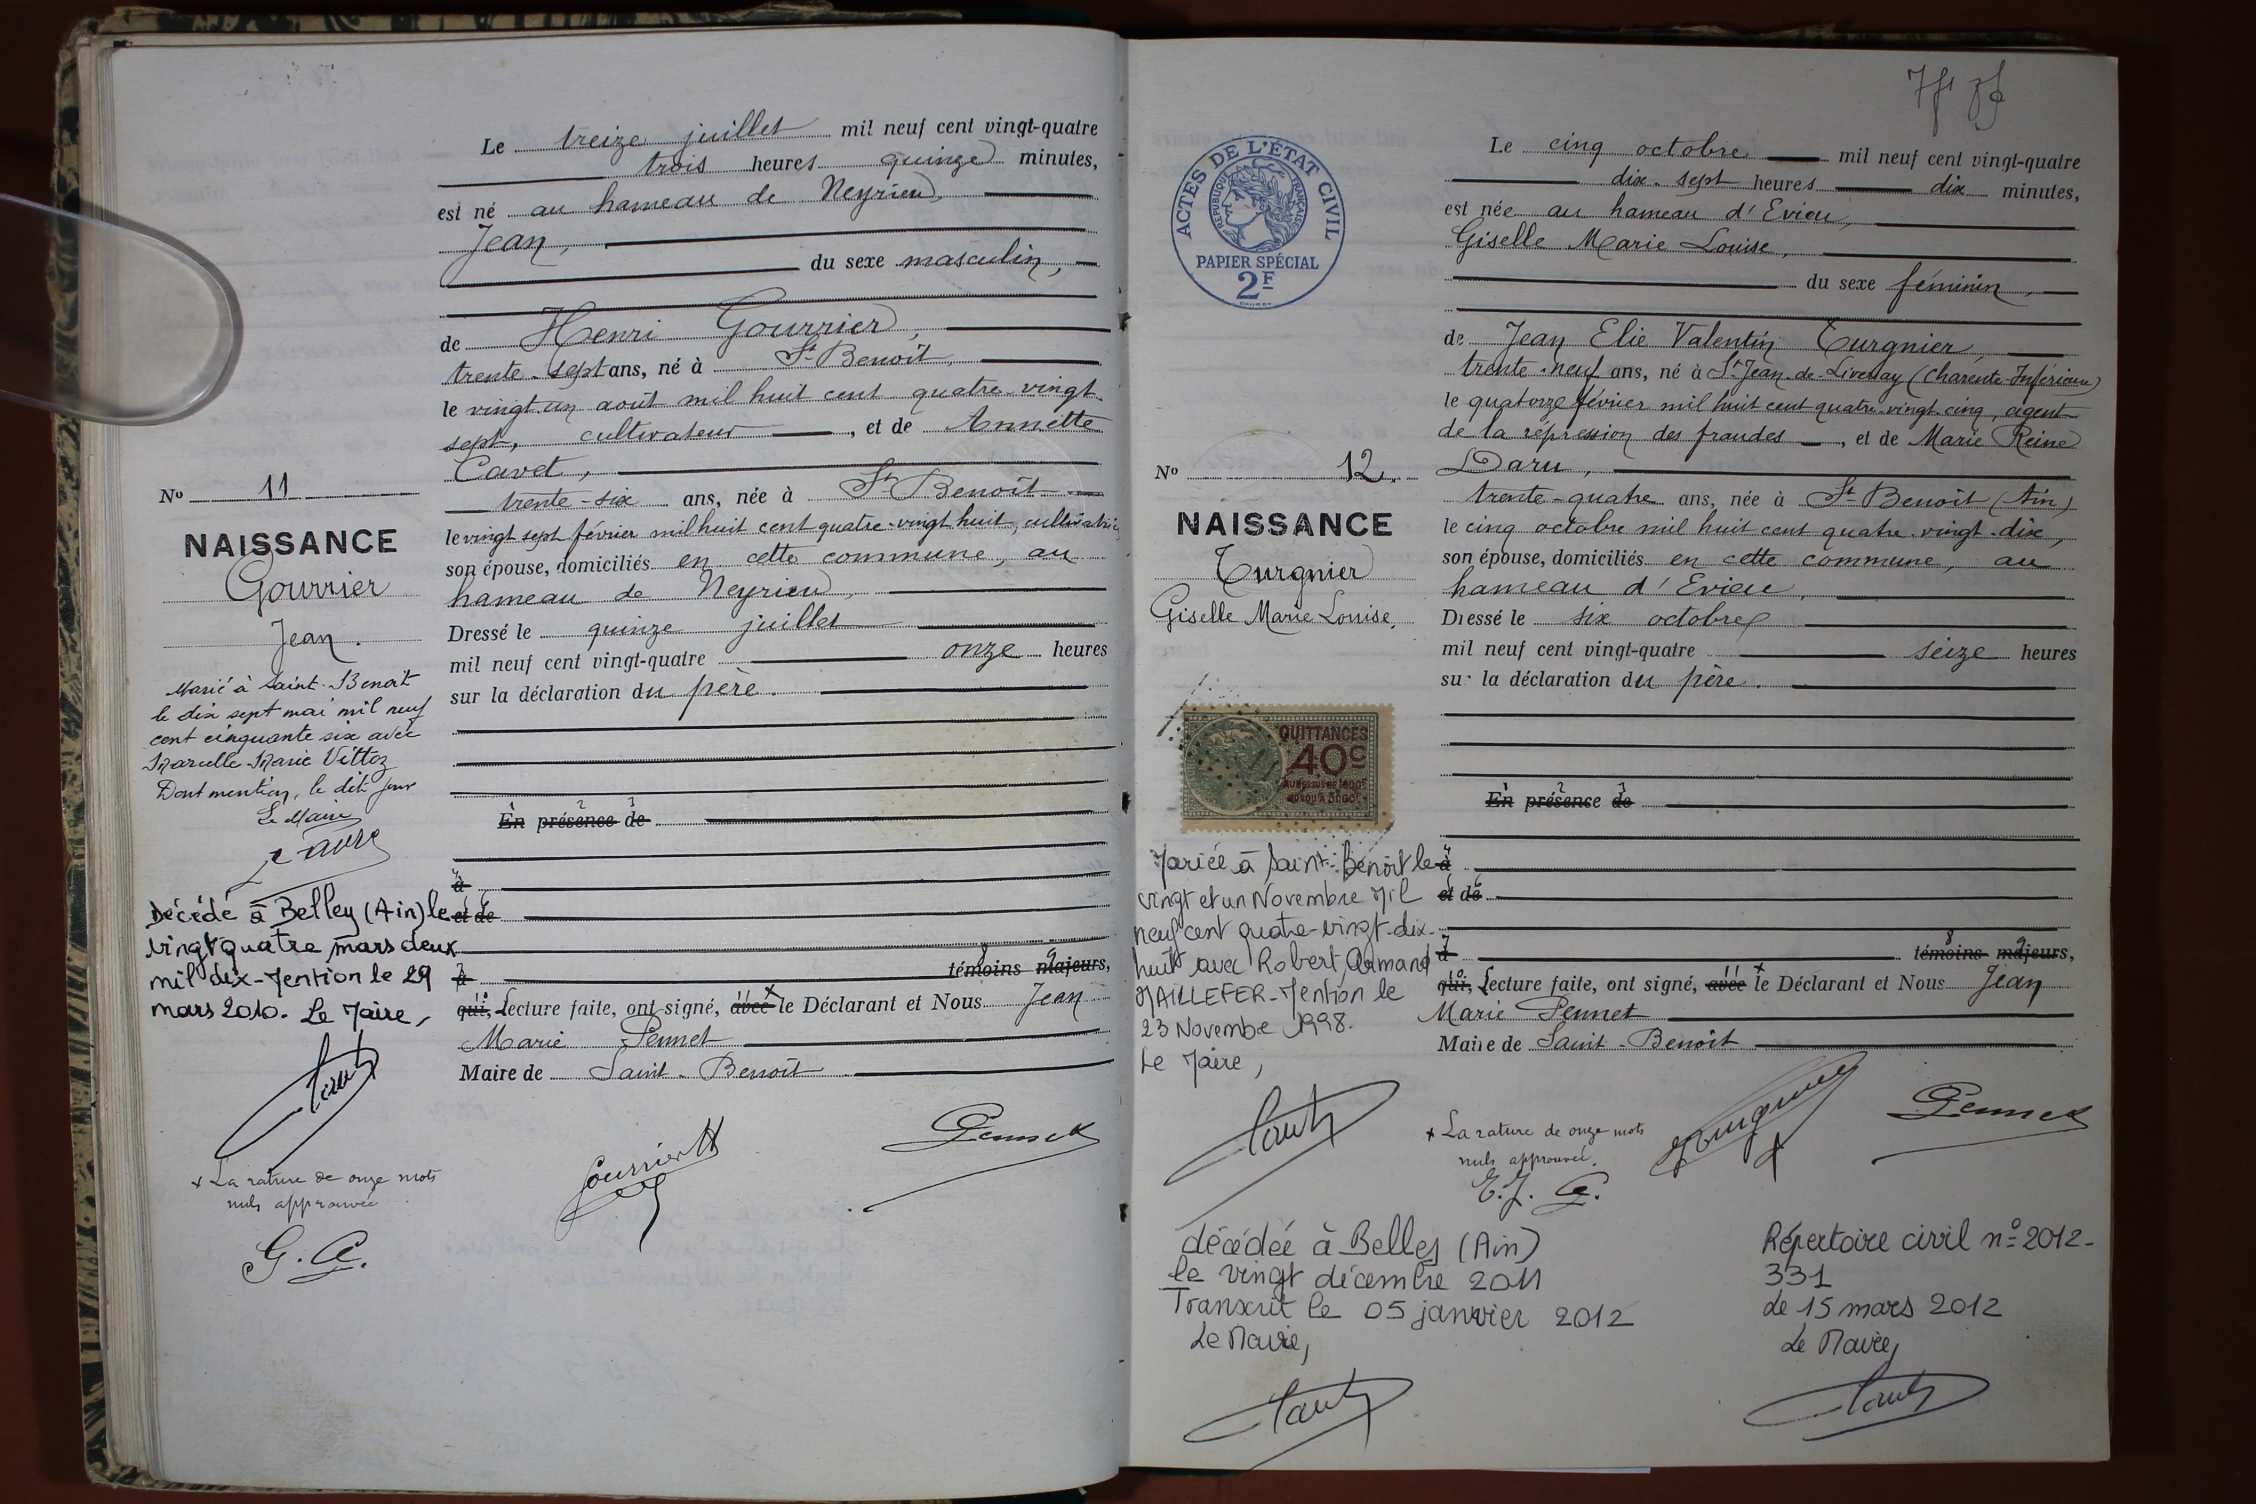 Le treize juillet mil neuf cent vingt-quatre
trois heures quinze minutes,
est né au hameau de Neyrieu,
Jean,
du sexe masculin,
de Henri Gourrier,
trente-sept ans, né à St Benoît,
le vingt un août mil huit cent quatre-vingt
sept, cultivateur, et de Annette
Cavet,
trente-six ans, née à St Benoît
le vingt sept février mil huit cent quatre-vingt huit, cultivatrice
son épouse, domiciliés en cette commune, au
hameau de Neyrieu,
Dressé le quinze juillet
mil neuf cent vingt-quatre onze heures
sur la déclaration du père.
En présence de
à
et de
à
témoins majeurs,
qui, Lecture faite, ont signé, avec le Déclarant et Nous Jean
Marie Pennet
Maire de Saint-Benoît
No 11
NAISSANCE
Gourrier
Jean.
Marié à Saint-Benoît
le dix sept mai mil neuf
cent cinquante six avec
Marcelle Marie Vittoz
Dont mention, le dit jour
Le Maire
Décédé à Belley (Ain) le
vingt quatre mars deux
mil dix - Mention le 29
mars 2010. Le Maire,
x La rature de onze mots
nuls approuvée
Gourrier H
Pennet
ACTES DE L'ÉTAT CIVIL
RÉPUBLIQUE FRANÇAISE
PAPIER SPÉCIAL
2F
Le cinq octobre mil neuf cent vingt-quatre
dix-sept heures dix minutes,
est née au hameau d'Evieu,
Giselle Marie Louise,
du sexe féminin,
de Jean Elie Valentin Turgnier,
trente-neuf ans, né à St Jean-de-Liversay (Charente-Inférieure)
le quatorze février mil huit cent quatre-vingt-cinq, agent
de la répression des fraudes, et de Marie Reine
Daru,
trente-quatre ans, née à St-Benoît (Ain)
le cinq octobre mil huit cent quatre-vingt-dix,
son épouse, domiciliés en cette commune, au
hameau d'Evieu,
Dressé le six octobre
mil neuf cent vingt-quatre seize heures
sur la déclaration du père.
En présence de
à
et de
à
témoins majeurs,
qui, Lecture faite, ont signé, avec le Déclarant et Nous Jean
Marie Pennet
Maire de Saint-Benoît
No 12.
NAISSANCE
Turgnier
Giselle Marie Louise,
QUITTANCES
40c
Mariée à Saint-Benoît le
vingt et un Novembre Mil
neuf cent quatre-vingt-dix-
huit avec Robert Armand
MAILLEFER - Mention le
23 Novembre 1998.
Le Maire,
x La rature de onze mots
nuls approuvée.
Pennet
décédée à Belley (Ain)
le vingt décembre 2011
Transcrit le 05 janvier 2012
Le Maire,
Répertoire civil n° 2012-
331
de 15 mars 2012
Le Maire,